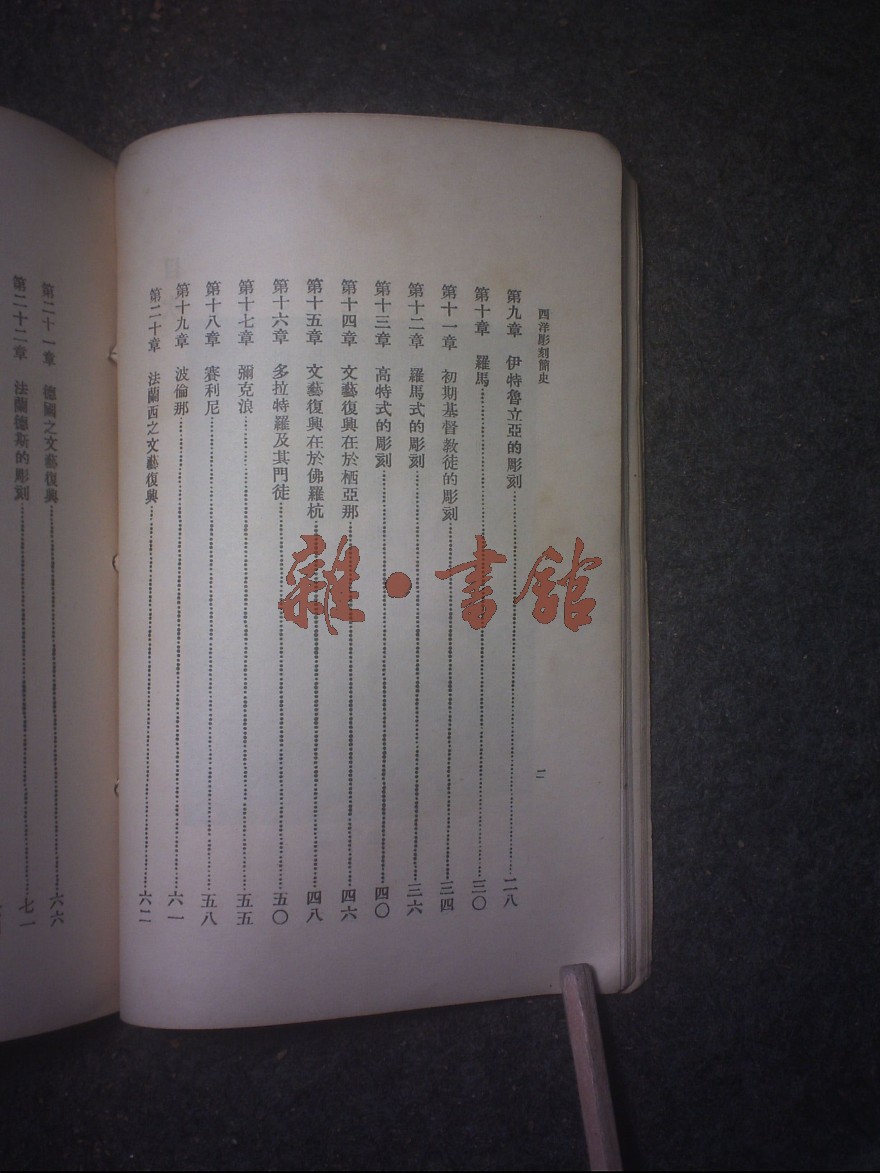 西洋彫刻簡史
二
第九章 伊特魯立亞的彫刻……二八
第十章 羅馬……三〇
第十一章 初期基督教徒的彫刻……三四
第十二章 羅馬式的彫刻……三六
第十三章 高特式的彫刻……四〇
第十四章 文藝復興在於栖亞那……四六
第十五章 文藝復興在於佛羅杭……四八
第十六章 多拉特羅及其門徒……五〇
第十七章 彌克浪……五五
第十八章 賽利尼……五八
第十九章 波倫那……六一
第二十章 法蘭西之文藝復興……六二
第二十一章 德國之文藝復興……六六
第二十二章 法蘭德斯的彫刻……七一
雜·書館